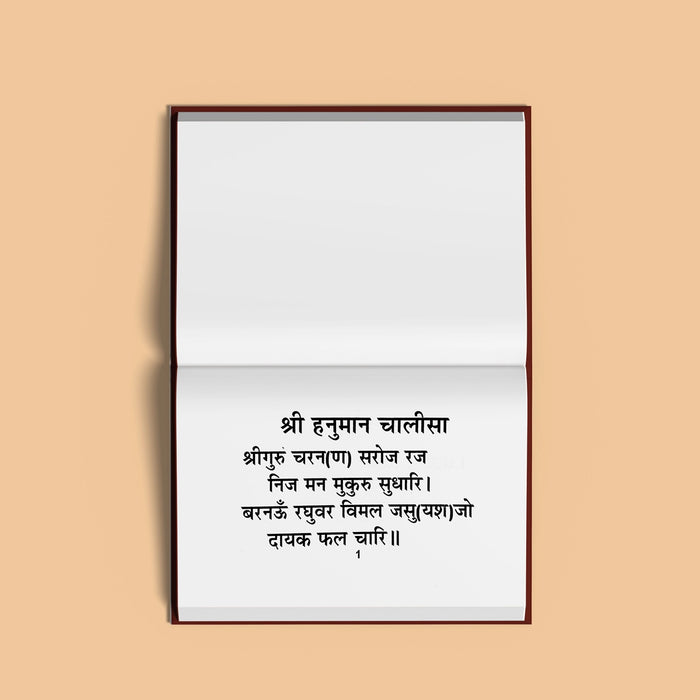 श्री हनुमान चालीसा
श्रीगुरुं चरन(ण) सरोज रज
निज मन मुकुरु सुधारि।
बरनऊँ रघुवर विमल जसु(यश)जो
दायक फल चारि॥
1